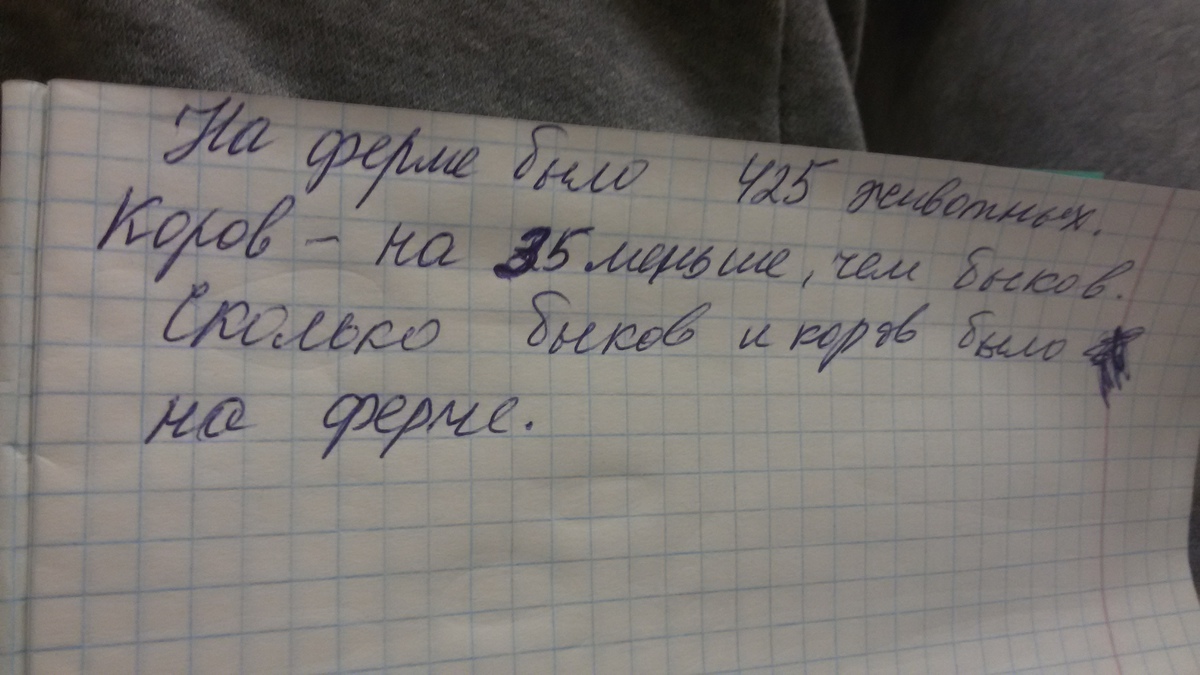 На ферме было 425 животных.
Коров - на 35 меньше, чем быков.
Сколько быков и коров было
на ферме.